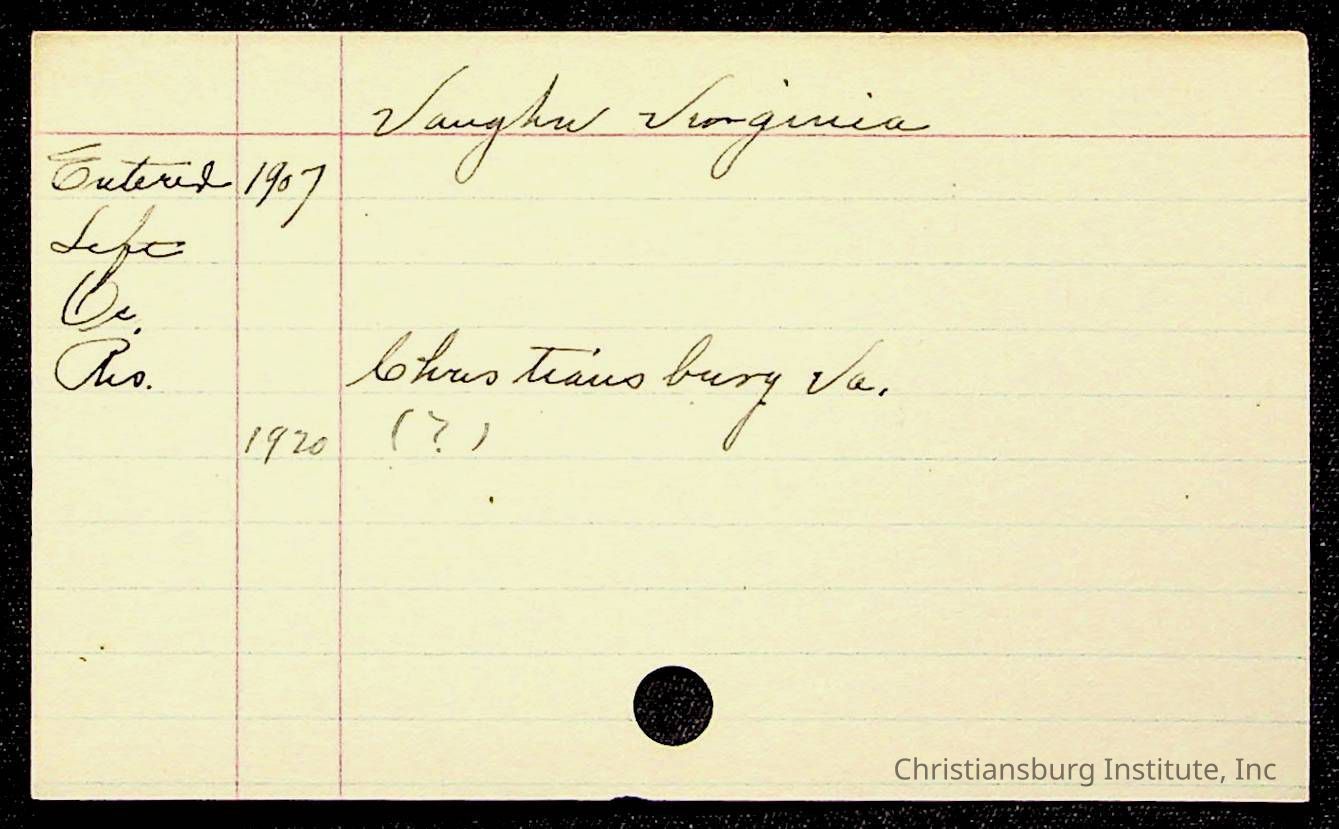 Vaughn Virginia
Entered 1907
Left
Oc.
Res. Christiansburg Va.
1920 (?)
Christiansburg Institute, Inc